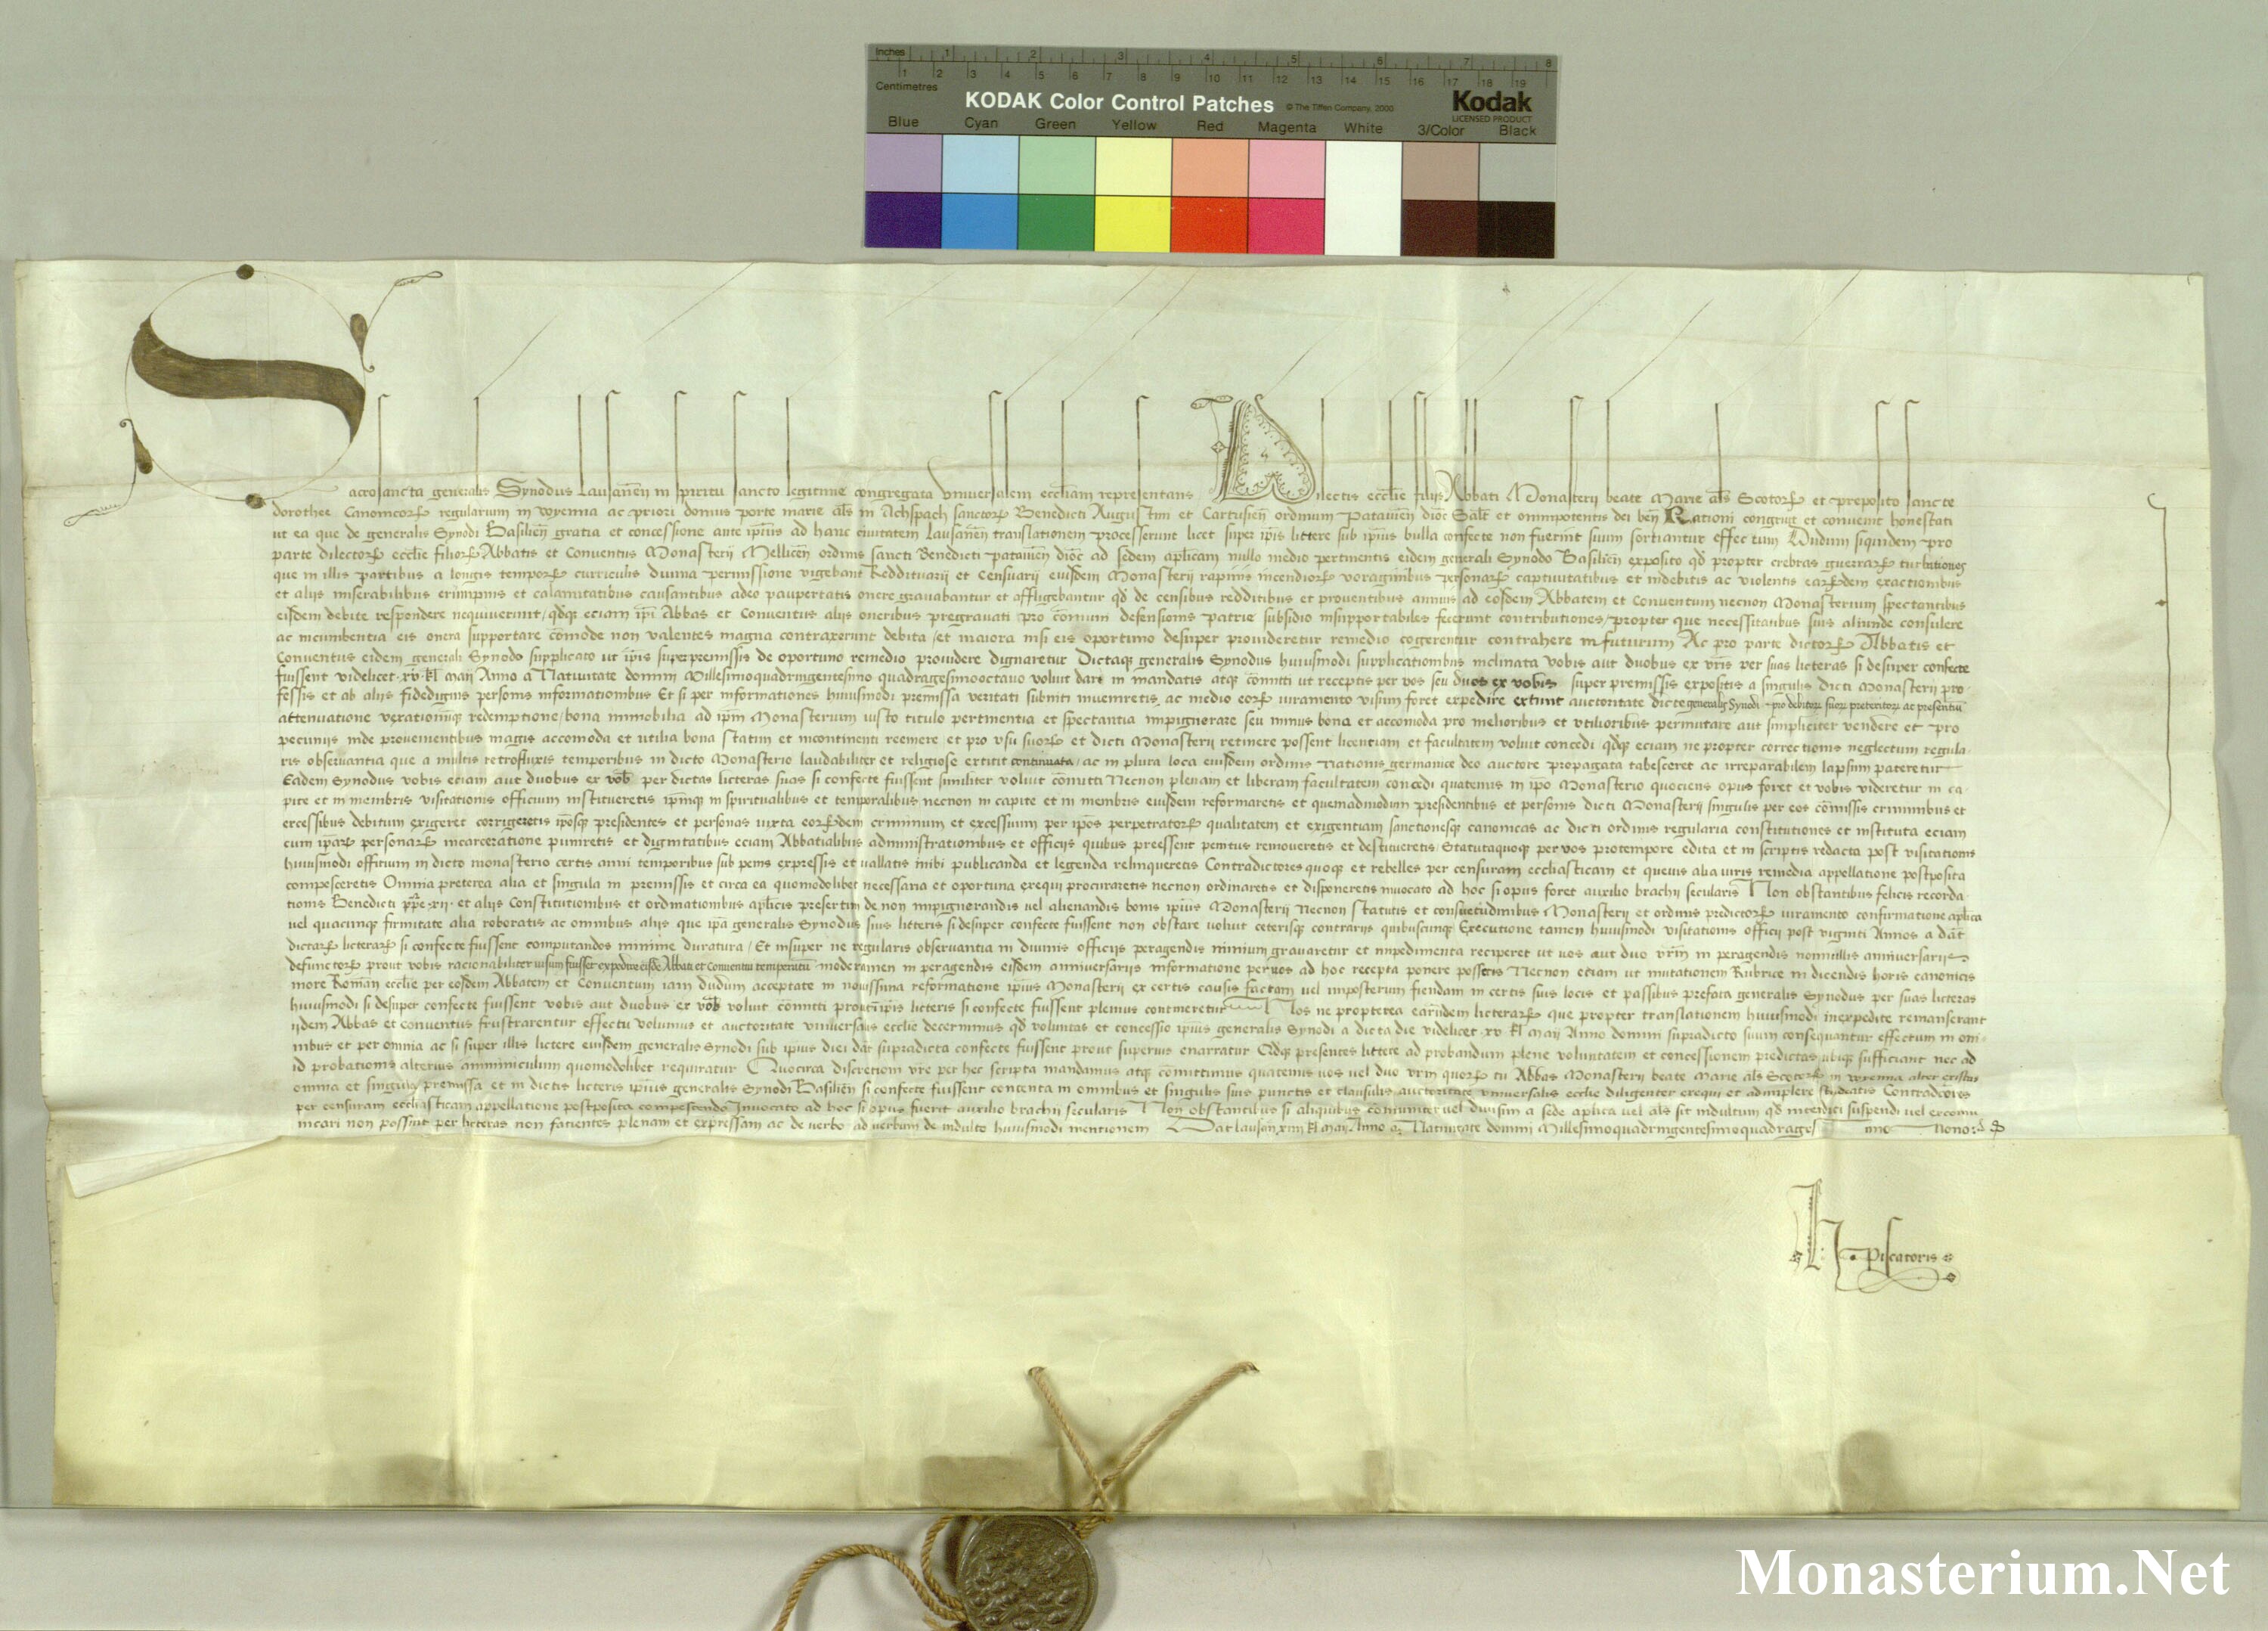 Inches 1 2 3 4 5 6 7 8
1 2 3 4 5 6 7 8 9 10 11 12 13 14 15 16 17 18 19
Centimetres
KODAK Color Control Patches © The Tiffen Company, 2000 Kodak
LICENSED PRODUCT
Blue Cyan Green Yellow Red Magenta White 3/Color Black
Sacrosancta generalis Synodus Lausaneñ in spiritu sancto legitime congregata Universalem eccliam representans Dilectis ecclie filijs Abbati Monasterij beate Marie als Scotorꝝ et preposito sancte
dorothee Canonicorꝝ regularium in wyenna ac priori domus porte marie als in Achspach sanctorꝝ Benedicti Augustini et Cartusieñ ordinum Patavieñ dioc̄ Salt̄ et omnipotentis dei ben̄ Rationi congruit et convenit honestati
ut ea que de generalis Synodi Basilieñ gratia et concessione ante ip̄ius ad hanc civitatem Lausaneñ translationem processerunt licet super ip̄is littere sub ip̄ius bulla confecte non fuerint suum sortiantur effectum Dudum siquidem pro
parte dilectorꝝ ecclie filiorꝝ Abbatis et Conventus Monasterij Mellicen̄ ordinis sancti Benedicti patavieñ dioc̄ ad sedem aplicam nullo medio pertinentis eidem generali Synodo Basilieñ exposito qđ propter crebras guerrarꝝ turbationes
que in illis partibus a longis temporꝝ curriculis divina permissione vigebant Reddituarij et Censuarij eiusdem Monasterij rapinis incendiorꝝ voraginibus personarꝝ captivitatibus et indebitis ac violentis earꝝdem exactionibus
et alijs miserabilibus erumpnis et calamitatibus causantibus adeo paupertatis onere gravabantur et affligebantur qđ de censibus redditibus et proventibus annuis ad eosdem Abbatem et Conventum necnon Monasterium spectantibus
eisdem debite respondere nequiverint, qđqȝ eciam ip̄i Abbas et Conventus alijs oneribus pregravati pro com̄uni defensionis patrie subsidio insupportabiles fecerunt contributiones, propter que necessitatibus suis aliunde consulere
ac incumbentia eis onera supportare com̄ode non valentes magna contraxerunt debita, et maiora nisi eis oportuno desuper provideretur remedio cogerentur contrahere in futurum Ac pro parte dictorꝝ Abbatis et
Conventus eidem generali Synodo supplicato ut ip̄is super premissis de oportuno remedio providere dignaretur Dictaqȝ generalis Synodus huiusmodi supplicationibus inclinata vobis aut duobus ex vr̄is per suas licteras si desuper confecte
fuissent videlicet .xv. kl̄ maij Anno a Nativitate domini Millesimoquadringentesimo quadragesimooctavo voluit dari in mandatis atqȝ com̄itti ut receptis per vos seu duos ex vobis super premissis expositis a singulis dicti Monasterij pro-
fessis et ab alijs fidedignis personis informationibus Et si per informationes huiusmodi premissa veritati subniti inveniretis, ac medio eorꝝ iuramento visum foret expedire extunc auctoritate dicte generalis Synodi pro debitorꝝ suorꝝ preteritorꝝ ac presentium
attenuatione vexationumqȝ redemptione, bona immobilia ad ip̄m Monasterium iusto titulo pertinentia et spectantia impignorare seu minus bona et accomoda pro melioribus et utilioribus permutare aut simpliciter vendere et pro
pecunijs inde provenientibus magis accomoda et utilia bona statim et incontinenti reemere et pro usu suorꝝ et dicti Monasterij retinere possent licentiam et facultatem voluit concedi, qđqȝ eciam ne propter correctionis neglectum regula-
ris observantia que a multis retrofluxis temporibus in dicto Monasterio laudabiliter et religiose extitit continuata, ac in plura loca eiusdem ordinis Nationis germanice deo auctore propagata tabesceret ac irreparabilem lapsum pateretur
Eadem Synodus vobis eciam aut duobus ex vob̄ per dictas licteras suas si confecte fuissent similiter voluit com̄itti Necnon plenam et liberam facultatem concedi quatenus in ip̄o Monasterio quociens opus foret et vobis videretur in ca-
pite et in membris visitationis officium institueretis ip̄mqȝ in spiritualibus et temporalibus necnon in capite et in membris eiusdem reformaretis et quemadmodum presidentibus et personis dicti Monasterij singulis per eos com̄issis criminibus et
excessibus debitum exigeret corrigeretis ip̄osqȝ presidentes et personas iuxta eorꝝdem criminum et excessuum per ip̄os perpetratorꝝ qualitatem et exigentiam sanctionesqȝ canonicas ac dicti ordinis regularia constitutiones et instituta eciam
cum ip̄arꝝ personarꝝ incarceratione puniretis et dignitatibus eciam Abbatialibus administrationibus et officijs quibus preessent penitus removeretis et destitueretis, Statutaquoqȝ per vos protempore edita et in scriptis redacta post visitationis
huiusmodi officium in dicto monasterio certis anni temporibus sub penis expressis et vallatis inibi publicanda et legenda relinqueretis Contradictores quoqȝ et rebelles per censuram ecclesiasticam et quevis alia iuris remedia appellatione postposita
compesceretis Omnia preterea alia et singula in premissis et circa ea quomodolibet necessaria et oportuna exequi procuraretis necnon ordinaretis et disponeretis invocato ad hoc si opus foret auxilio brachij secularis Non obstantibus felicis recorda-
tionis Benedicti pp̄e .xij. et alijs Constitutionibus et ordinationibus aplicis presertim de non impignorandis vel alienandis bonis ip̄ius Monasterij Necnon statutis et consuetudinibus Monasterij et ordinis predictorꝝ iuramento confirmatione aplica
vel quacunqȝ firmitate alia roboratis ac omnibus alijs que ip̄a generalis Synodus suis litteris si desuper confecte fuissent non obstare voluit ceterisqȝ contrarijs quibuscunqȝ Executione tamen huiusmodi visitationis officij post viginti Annos a dat̄
dictarꝝ licterarꝝ si confecte fuissent computandos minime duratura, Et insuper ne regularis observantia in divinis officijs peragendis nimium gravaretur et impedimenta reciperet ut vos aut duo vr̄m in peragendis nonnullis anniversarijs
defunctorꝝ prout vobis racionabiliter visum fuisset expedire eisdē Abbati et Conventui temperatū moderamen in peragendis eisdem anniversarijs informatione per vos ad hoc recepta ponere possetis Necnon eciam ut mutationem Rubrice in dicendis horis canonicis
more Roman̄ ecclie per eosdem Abbatem et Conventum iam dudum acceptate in novissima reformatione ip̄ius Monasterij ex certis causis factam vel imposterum fiendam in certis suis locis et passibus prefata generalis Synodus per suas licteras
huiusmodi si desuper confecte fuissent vobis aut duobus ex vob̄ voluit com̄itti prout in ip̄is licteris si confecte fuissent plenius contineretur Nos ne propterea earundem licterarꝝ que propter translationem huiusmodi inexpedite remanserant
ijdem Abbas et conventus frustrarentur effectu volumus et auctoritate universalis ecclie decernimus qđ voluntas et concessio ip̄ius generalis Synodi a dicta die videlicet .xv. kl̄ maij Anno domini supradicto suum consequantur effectum in om-
nibus et per omnia ac si super illis lictere eiusdem generalis Synodi sub ip̄ius diei dat̄ supradicta confecte fuissent prout superius enarratur Qđqȝ presentes littere ad probandum plene voluntatem et concessionem predictas ubiqȝ sufficiant nec ad
id probationis alterius amminiculum quomodolibet requiratur Quocirca discretioni vr̄e per hec scripta mandamus atqȝ com̄ittimus quatenus vos vel duo vr̄m quorꝝ tu Abbas Monasterij beate Marie als Scotorꝝ in wyenna alter existas
omnia et singula premissa et in dictis licteris ip̄ius generalis Synodi Basilieñ si confecte fuissent contenta in omnibus et singulis suis punctis et clausulis auctoritate universalis ecclie diligenter exequi et adimplere studeatis Contradc̄ores
per censuram ecclesiasticam appellatione postposita compescendo Invocato ad hoc si opus fuerit auxilio brachij secularis Non obstantibus si aliquibus com̄uniter vel divisim a sede aplica vel als sit indultum qđ interdici suspendi vel excomu-
nicari non possint per licteras non facientes plenam et expressam ac de verbo ad verbum de indulto huiusmodi mentionem Dat Lausan̄ xiiij kl̄ maij Anno a Nativitate domini Millesimoquadringentesimoquadragesimo Nono
H. Piscatoris
Monasterium.Net